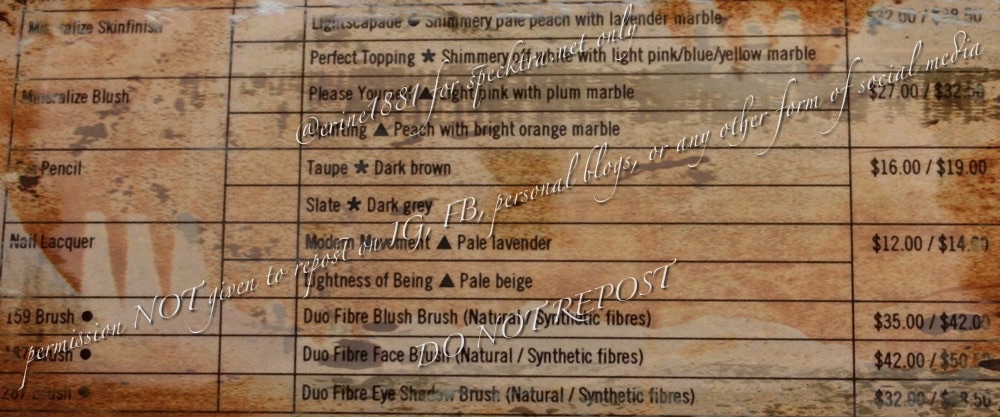 Mineralize Skinfinish Lightscapade ● Shimmery pale peach with lavender marble
Perfect Topping ★ Shimmery off white with light pink/blue/yellow marble
Mineralize Blush Please Yourself ▲ Light pink with plum marble $27.00 / $32.50
▲ Peach with bright orange marble
Pencil Taupe ★ Dark brown $16.00 / $19.00
Slate ★ Dark grey
Nail Lacquer Modern Movement ▲ Pale lavender $12.00 / $14.
Lightness of Being ▲ Pale beige
159 Brush ● Duo Fibre Blush Brush (Natural / Synthetic fibres) $35.00 / $42.00
187 Brush ● Duo Fibre Face Brush (Natural / Synthetic fibres) $42.00 / $50
287 Brush ● Duo Fibre Eye Shadow Brush (Natural / Synthetic fibres) $32.00 / 
@erine1881 for specktra.net only
permission NOT given to repost on IG, FB, personal blogs, or any other form of social media
DO NOT REPOST